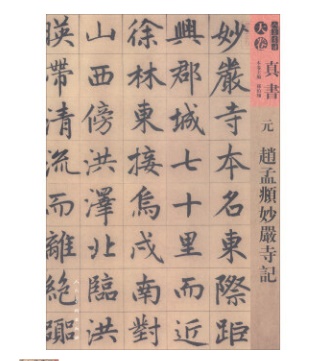 大卷
真書
元 趙孟頫妙嚴寺記
妙嚴寺本名東際距
興郡城七十里而近
徐林東接烏戍南對
山西傍洪澤北臨洪
暎帶清流而離絕囂